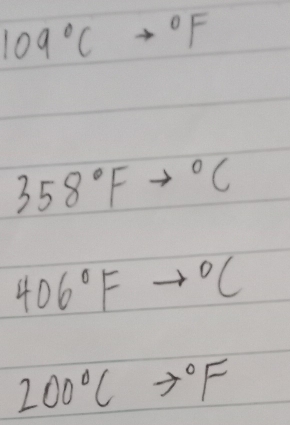 109°C → °F
358°F → °C
406°F → °C
200°C → °F